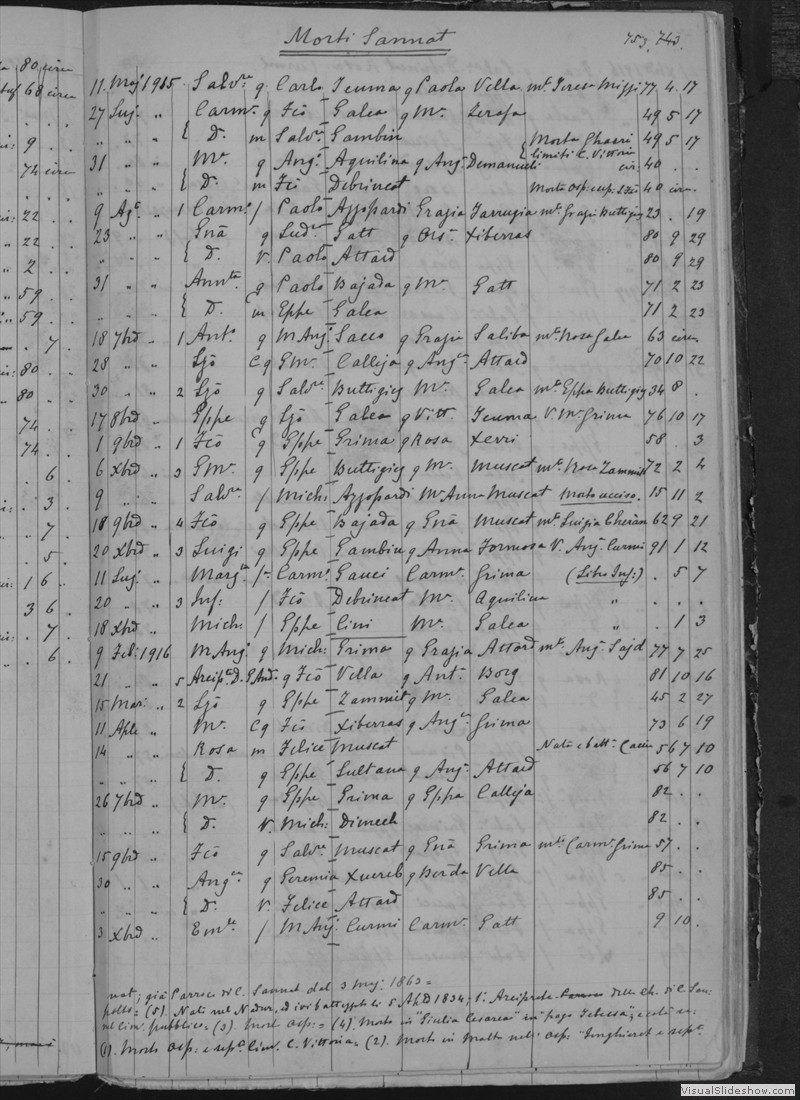 Morti Sannat
753, 743.
11 Maj 1915 Salv.re g Carlo Teuma g Paola Vella m.e Teresa Mizzi 77 4 17
27 Lug. " Carm. g Fcō Galea g M.a Zerafa 49 5 17
" " " { D. m Salv.re Gambin Morta Ghasri 49 5 17
31 " " M.a g Ang. Aquilina g Ang. Demanueli limiti C. Vittoria cir: 40 . .
" " " { D. m Fcō Debrincat Morta Osp: 40 circa
9 Ag.o " 1 Carm. / Paolo Azzopardi Grazia Farrugia m.e Grazia Buttigieg 23 . 19
23 " " Gnā g Lud. Gatt g Ors. Xiberras 80 9 29
" " " { D. V. Paolo Attard 80 9 29
31 " " Annt.a g Paolo Bajada g M.a Gatt 71 2 23
" " " { D. m Eppe Galea 71 2 23
18 7brē " 1 Ant.o g M Ang. Sacco g Grazia Saliba m.e Rosa Galea 63 circa
28 " " Ljō C g Gm. Calleja g Ang.a Attard 70 10 22
30 " " 2 Ljō g Salv.re Buttigieg M.a Galea m.e Eppa Buttigieg 34 8 .
17 8brē " Eppe g Ljō Galea g Vitt. Teuma V. M.a Grima 76 10 17
1 9brē " 1 Fcō g Eppe Grima g Rosa Xerri 58 . 3
6 Xbrē " 3 Gm. g Eppe Buttigieg g M.a Muscat m.e Rosa Zammit 72 2 4
9 " " Salv.re / Mich: Azzopardi M.a Anna Muscat Morto ucciso. 15 11 2
18 9brē " 4 Fcō g Eppe Bajada g Gnā Muscat m.e Luigia 62 9 21
20 Xbrē " 3 Luigi g Eppe Gambin g Anna Formosa V. Ang. Curmi 91 1 12
11 Lug. " Marg.ta / Carm. Gauci Carm. Grima (Libro Inf:) . 5 7
20 " " 3 Inf: / Fcō Debrincat M.a Aquilina " . . .
18 Xbrē " Mich: / Eppe Cini M.a Galea " . 1 3
9 Feb: 1916 M Ang. g Mich: Grima g Grazia Attard m.e Ang. Sajd 77 7 25
21 " " 5 Arcip.e D. g Fcō Vella g Ant. Borg 81 10 16
15 Mar: " 2 Ljō g Eppe Zammit g M.a Galea 45 2 27
11 Aple " M.a C g Fcō Xiberras g Ang.a Grima 73 6 19
14 " " Rosa m Felice Muscat Nata e batt. 56 7 10
" " " { D. g Eppe Sultana g Ang. Attard 56 7 10
26 7brē " M.a g Eppe Grima g Eppa Calleja 82 . .
" " " { D. V. Mich: Dimech 82 . .
15 9brē " Fcō g Salv.re Muscat g Gnā Grima m.e Carm. Grima 57 . .
30 " " Ang.ca g Geremia Xuereb g Berda Vella 85 . .
" " " { D. V. Felice Attard 85 . .
3 Xbrē " Em.le / M Ang. Curmi Carm. Gatt 9 10 .
nat; già Parroco di C. Sannat dal 3 Mag. 1863 =
(5). Nato nel Nadur, ed ivi battezzato li 5 1834; 1.o Arciprete della Ch. di C. San:
pubblico = (3). Morto Osp: = (4). Morto in "Giulia Cesarea"
(1). Morto Osp: e sep.o Cim. C. Vittoria = (2). Morto in Malta nell' Osp: e sep.o
VisualSlideshow.com